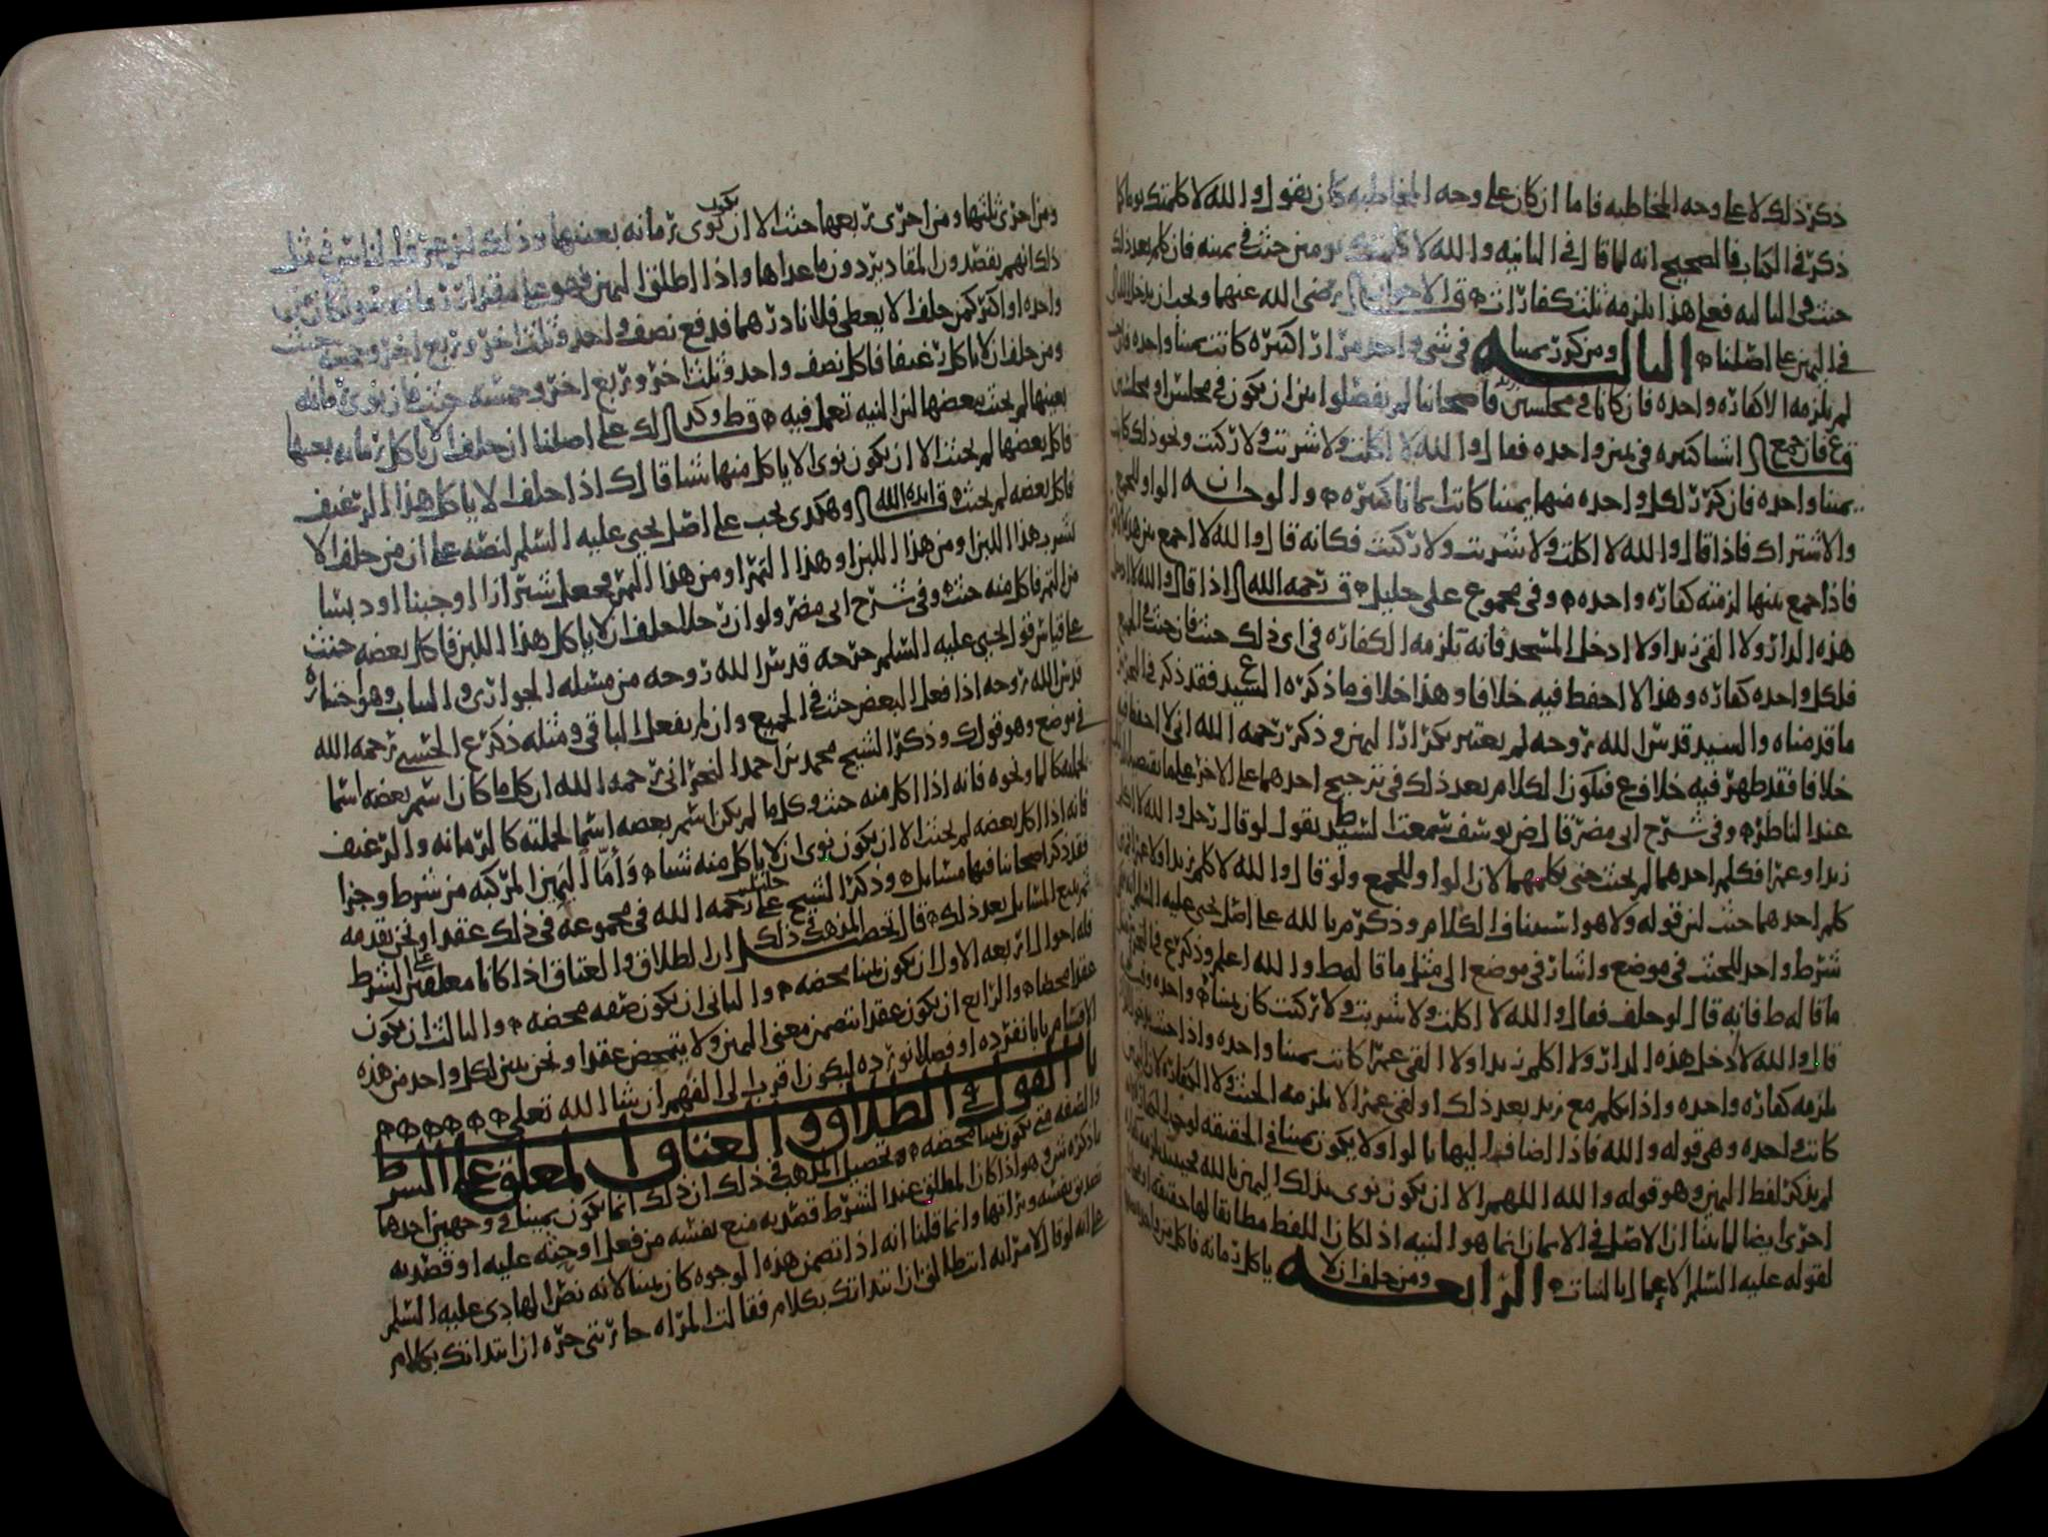 ذكر ذلك لا على وجه المخاطبه فاما ان كان على وجه المخاطبه كان يقول والله لا كلمتك يوما كما
ذكر في الكتاب فالصحيح انه لما قال في الثانيه والله لا كلمتك يومين حنث في يمينه فان كلم بعد ذلك
حنث في الثالثه فعلى هذا يلزمه ثلث كفارات قال الاخوان رضي الله عنهما
في اليمين على اصلنا الثالثه ومن كرر يمينا في شي واحد مرارا كثيره كانت يمينا واحده
لم يلزمه الا كفاره واحده فان كانا في مجلسين فاصحابنا لم يفصلوا بين ان يكون في مجلس او مجلسين
فرع فان جمع اشيا كثيره في يمين واحده فقال والله لا اكلت ولا شربت ولا ركبت ونحو ذلك كانت
يمينا واحده فان كرر لكل واحده منها يمينا كانت ايمانا كثيره والوجه انه الواو للجمع
والاشتراك فاذا قال والله لا اكلت ولا شربت ولا ركبت فكانه قال والله لا اجمع بين هذه
فاذا جمع بينها لزمته كفاره واحده وفي مجموع علي خليل رحمه الله اذا قال والله لا
هذه الدار ولا القى زيدا ولا ادخل المسجد فانه تلزمه الكفاره في اي ذلك حنث فان حنث في الجميع
فلكل واحده كفاره وهذا لا احفظ فيه خلافا وهذا خلاف ما ذكره السيد فقد ذكر في
ما قدمناه والسيد قدس الله روحه لم يعتبر تكرار اليمين وذكر رحمه الله اني لا احفظ فيه
خلافا فقد ظهر فيه خلاف فيكون الكلام بعد ذلك في ترجيح احدهما على الاخر على ما يقتضيه
عند الناظر وفي شرح ابي مضر قال ض يوسف سمعت السيد ط يقول لو قال رجل والله لا اكلم
زيدا وعمرا فكلم احدهما لم يحنث حتى يكلمهما لان الواو للجمع ولو قال والله لا كلم زيدا ولا عمرا
كلم احدهما حنث لان قوله ولا هو استيناف الكلام وذكر م بالله على اصل يحيى عليه السلم
شرط واحد للحنث في موضع واشار في موضع الى مثل ما قاله ط والله اعلم وذكر ع في
ما قاله ط فانه قال لو حلف فقال والله لا اكلت ولا شربت ولا ركبت كان يمينا واحده
قال والله لا دخل هذه الدار ولا اكلم زيدا ولا القى عمرا كانت يمينا واحده واذا حنث
يلزمه كفاره واحده واذا تكلم مع زيد بعد ذلك او لقي عمرا لا يلزمه الحنث ولا الكفاره لان
كانت واحده وهي قوله والله فاذا اضاف اليها بالواو لا يكون يمينا في الحقيقه
لم يذكر لفظ اليمين وهو قوله والله اللهم الا ان يكون نوى بذلك اليمين بالله
اخرى ايضا لما بينا ان الاصل في الايمان انما هو النيه اذا كان اللفظ مطابقا لها حقيقه
لقوله عليه السلم الاعمال بالنيات الرابعه ومن حلف ان لا ياكل رمانه فاكل من واحده
ومن اخرى ثلثها ومن اخرى ربعها حنث الا ان يكون نوى رمانه بعينها وذلك لان عرف الناس في مثل
ذلك انهم يقصدون المقادير دون ما عداها واذا اطلقوا اليمين فهو على مقدار رمانه سوا كان من
واحده او اكثر كمن حلف الا يعطي فلانا درهما فدفع نصف واحد وثلث اخر وربع اخر وخمسه حنث
ومن حلف ان لا ياكل رغيفا فاكل نصف واحد وثلث اخر وربع اخر وخمسه حنث فان نوى رمانه
بعينها لم يحنث ببعضها لان النيه تعمل فيه قال ط وكذلك على اصلنا ان حلف ان لا ياكل رمانه بعينها
فاكل بعضها لم يحنث الا ان يكون نوى الا ياكل منها شيا قال ك اذا حلف لا ياكل هذا الرغيف
فاكل بعضه لم يحنث قال ايده الله وهكذى يجب على اصل يحيى عليه السلم لنصه على ان من حلف لا
شرب هذا اللبن او من هذا اللبن او هذا التمر او من هذا التمر فجعل شترازا او جبنا او دبسا
من التمر فاكل منه حنث وفي شرح ابي مضر ولو ان رجلا حلف ان لا ياكل هذا اللبن فاكل بعضه حنث
على قياس قول يحيى عليه السلم خرجه قدس الله روحه من مسئله الجوارى والثياب وهو اختياره
قدس الله روحه اذا فعل البعض حنث في الجميع وان لم يفعل الباقي ومثله ذكر ع الحسني رحمه الله
في موضع وهو قول ك وذكر الشيخ محمد بن احمد النجراني رحمه الله ان كل ما كان اسم بعضه اسما
لجملته كالما ونحوه فانه اذا اكل منه حنث وكل ما لم يكن اسم بعضه اسما لجملته كالرمانه والرغيف
فانه اذا اكل بعضه لم يحنث الا ان يكون نوى ان لا ياكل منه شيا واما اليمين المركبه من شرط وجزا
فقد ذكر اصحابنا فيها مسايل وذكر الشيخ علي خليل رحمه الله في مجموعه في ذلك عقدا ونحن نقدمه
ثم نتبع المسايل بعد ذلك قال تحصيل المذهب في ذلك ان الطلاق والعتاق اذا كانا معلقين على الشرط
فله احوال اربعه الاول ان يكون يمينا محضه والثاني ان يكون صفه محضه والثالث ان يكون
عقدا محضا والرابع ان يكون عقدا يتضمن معنى اليمين ولا يتمحض عقدا ونحن نبين لكل واحد من هذه
الاقسام بابا نفرده او فصلا نورده ليكون اقرب الى الفهم ان شا الله تعلى
باب القول في الطلاق والعتاق المعلق على الشرط
والصفه متى يكون يمينا محضه وتحصيل المذهب في ذلك ان ذلك انما يكون يمينا في وجهين احدهما
ما ذكره ش وهو اذا كان المطلق عند الشرط قصد به منع نفسه من فعل او حثه عليه او قصد به
تصديق نفسه وبراتها وانما قلنا انه اذا تضمن هذه الوجوه كان يمينا لانه نص الهادي عليه السلم
على انه لو قال لامراته انت طالق ان ابتداتك بكلام فقالت المراه جاريتي حره ان ابتداتك بكلام